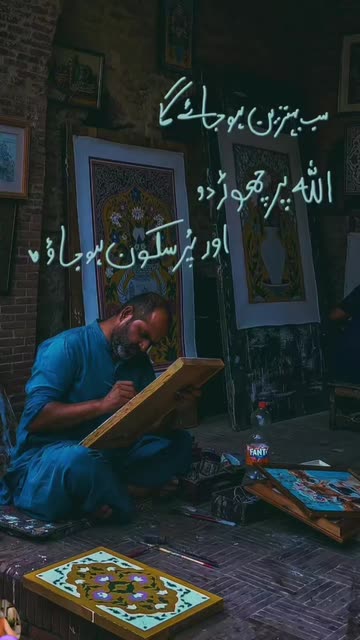 سب بہترین ہو جائے گا
اللہ پر چھوڑ دو
اور پُر سکون ہو جاؤ ♥
FANT